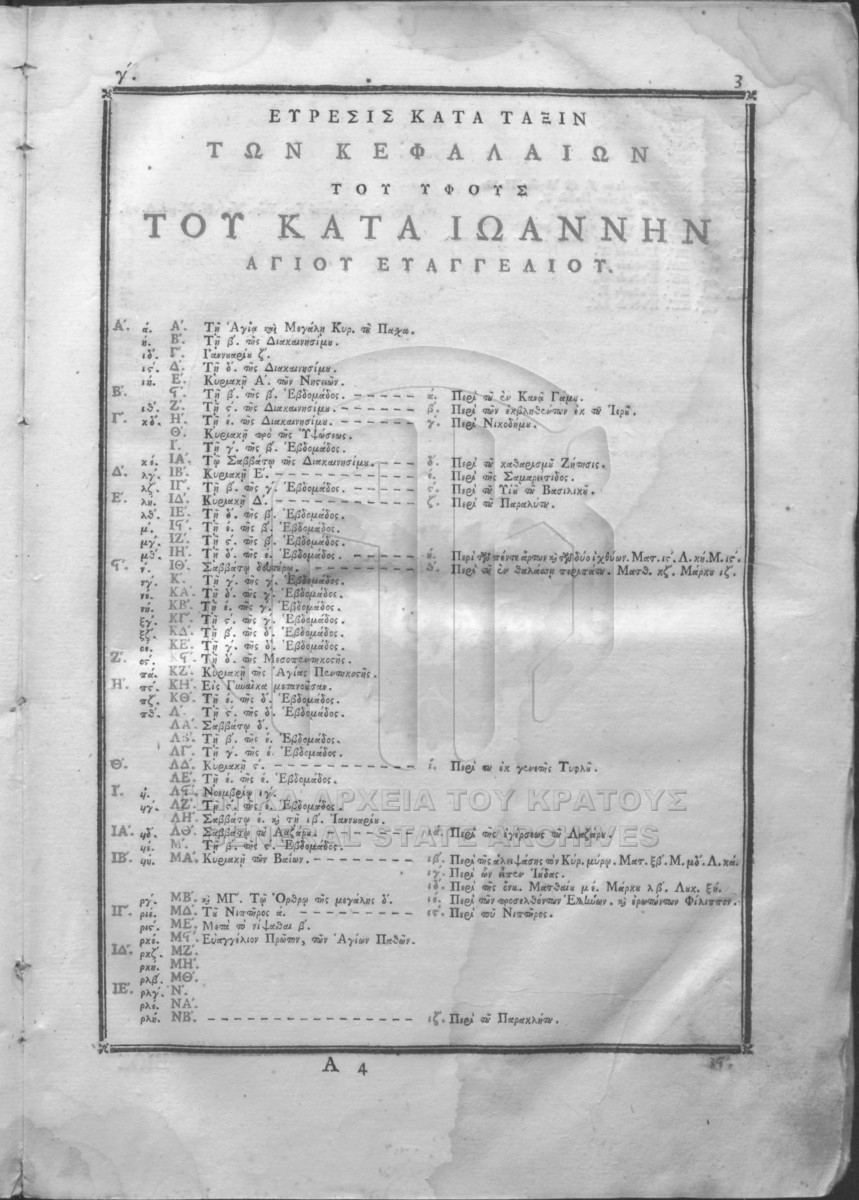 γ΄. 3
ΕΥΡΕΣΙΣ ΚΑΤΑ ΤΑΞΙΝ
ΤΩΝ ΚΕΦΑΛΑΙΩΝ
ΤΟΥ ΥΦΟΥΣ
ΤΟΥ ΚΑΤΑ ΙΩΑΝΝΗΝ
ΑΓΙΟΥ ΕΥΑΓΓΕΛΙΟΥ.
Α΄. ά. Α΄. Τῇ Ἁγίᾳ καὶ Μεγάλῃ Κυρ. τοῦ Πασχα.
ή. Β΄. Τῇ β΄. τῆς Διακαινησίμου.
ιδ΄. Γ΄. Ιαννουαρίου ζ΄.
ις΄. Δ΄. Τῇ δ΄. τῆς Διακαινησίμου.
ιή. Ε΄. Κυριακῇ Α΄. τῶν Νηςειῶν.
Β΄. Ϛ΄. Τῇ β΄. τῆς β΄. Ἑβδομάδος. – – – – – ά. Περὶ τοῦ ἐν Κανᾷ Γάμου.
ιθ΄. Ζ΄. Τῇ ς΄. τῆς Διακαινησίμου. – – – – – β΄. Περὶ τῶν ἐκβληθέντων ἐκ τοῦ Ἱεροῦ.
Γ΄. κδ΄. Η΄. Τῇ έ. τῆς Διακαινησίμου. – – – – – γ΄. Περὶ Νικοδήμου.
Θ΄. Κυριακῇ πρὸ τῆς Ὑψώσεως.
Ι΄. Τῇ γ΄. τῆς β΄. Ἑβδομάδος.
κέ. ΙΑ΄. Τῷ Σαββάτῳ τῆς Διακαινησίμου. – – – δ΄. Περὶ τοῦ καθαρισμοῦ Ζήτησις.
Δ΄. λγ΄. ΙΒ΄. Κυριακῇ Ε΄. – – – – – – – έ. Περὶ τῆς Σαμαρείτιδος.
λζ΄. ΙΓ΄. Τῇ β΄. τῆς γ΄. Ἑβδομάδος. – – – – – ς΄. Περὶ τοῦ Υἱοῦ τοῦ Βασιλικοῦ.
Ε΄. λή. ΙΔ΄. Κυριακῇ Δ΄. – – – – – – – ζ΄. Περὶ τοῦ Παραλύτου.
λθ΄. ΙΕ΄. Τῇ δ΄. τῆς β΄. Ἑβδομάδος.
μ΄. ΙϚ΄. Τῇ έ. τῆς β΄. Ἑβδομάδος.
μγ΄. ΙΖ΄. Τῇ ς΄. τῆς β΄. Ἑβδομάδος.
μθ΄. ΙΗ΄. Τῇ δ΄. τῆς έ. Ἑβδομάδος. – – – – – ή. Περὶ τῶν πέντε άρτων καὶ τῶν δύο ἰχθύων. Ματ. ις΄. Λ. κή. Μ. ις΄.
Ϛ΄. ν΄. ΙΘ΄. Σαββάτῳ δευτέρῳ. – – – – – – θ΄. Περὶ τοῦ ἐν θαλάσσῃ περιπάτου. Ματθ. κζ΄. Μάρκου ιζ΄.
νγ΄. Κ΄. Τῇ γ΄. τῆς γ΄. Ἑβδομάδος.
νέ. ΚΑ΄. Τῇ δ΄. τῆς γ΄. Ἑβδομάδος.
νή. ΚΒ΄. Τῇ έ. τῆς γ΄. Ἑβδομάδος.
ξγ΄. ΚΓ΄. Τῇ ς΄. τῆς γ΄. Ἑβδομάδος.
ξζ΄. ΚΔ΄. Τῇ β΄. τῆς δ΄. Ἑβδομάδος.
οέ. ΚΕ΄. Τῇ γ΄. τῆς δ΄. Ἑβδομάδος.
Ζ΄. ος΄. ΚϚ΄. Τῇ δ΄. τῆς Μεσοπεντηκοςῆς.
πά. ΚΖ΄. Κυριακῇ τῆς Ἁγίας Πεντηκοςῆς.
Η΄. πς΄. ΚΗ΄. Εἰς Γυναῖκα μετανοῦσαν.
πζ΄. ΚΘ΄. Τῇ έ. τῆς δ΄. Ἑβδομάδος.
πθ΄. Λ΄. Τῇ ς΄. τῆς δ΄. Ἑβδομάδος.
ΛΑ΄. Σαββάτῳ δ΄.
ΛΒ΄. Τῇ β΄. τῆς έ. Ἑβδομάδος.
ΛΓ΄. Τῇ γ΄. τῆς έ. Ἑβδομάδος.
Θ΄. ΛΔ΄. Κυριακῇ ς΄. – – – – – – – ί. Περὶ τοῦ ἐκ γενετῆς Τυφλοῦ.
ΛΕ΄. Τῇ έ. τῆς έ. Ἑβδομάδος.
Ι΄. ΛϚ΄. Νοεμβρίῳ ιγ΄.
ΛΖ΄. Τῇ ς΄. τῆς έ. Ἑβδομάδος.
ΛΗ΄. Σαββάτῳ έ. καὶ τῇ ιβ΄. Ἰαννουαρίου.
ΙΑ΄. ΛΘ΄. Σαββάτῳ τοῦ Λαζάρου. – – – – – ιά. Περὶ τῆς ἐγέρσεως τοῦ Λαζάρου.
Μ΄. Τῇ β΄. τῆς ς΄. Ἑβδομάδος.
ΙΒ΄. ΜΑ΄. Κυριακῇ τῶν Βαΐων. – – – – – – ιβ΄. Περὶ τῆς ἀλειψάσης τὸν Κύρ. μύρῳ. Ματ. ξβ΄. Μ. μδ΄. Λ. κά.
ιγ΄. Περὶ ὧν εἶπεν Ἰούδας.
ιδ΄. Περὶ τῆς ὄνου. Ματθαίου μέ. Μάρκου λβ΄. Λυκ. ξή.
ργ΄. ΜΒ΄. καὶ ΜΓ΄. Τῷ Ὄρθρῳ τῆς μεγάλης δ΄. ιέ. Περὶ τῶν προσελθόντων Ἑλλήνων. καὶ ἐρωτώντων Φίλιππον.
ΙΓ΄. ριέ. ΜΔ΄. Τοῦ Νιπτῆρος ά. – – – – – – – ις΄. Περὶ τοῦ Νιπτῆρος.
ρις΄. ΜΕ΄. Μετὰ τὸ νίψασθαι β΄.
ρκέ. ΜϚ΄. Εὐαγγέλιον Πρῶτον, τῶν Ἁγίων Παθῶν.
ΙΔ΄. ρκζ΄. ΜΖ΄.
ρκή. ΜΗ΄.
ρλβ΄. ΜΘ΄.
ΙΕ΄. ρλγ΄. Ν΄.
ρλέ. ΝΑ΄.
ρλή. ΝΒ΄. – – – – – – – – – – – – ιζ΄. Περὶ τοῦ Παρακλήτου.
Α 4 ΙϚ΄.
ΑΡΧΕΙΑ ΤΟΥ ΚΡΑΤΟΥΣ
STATE ARCHIVES